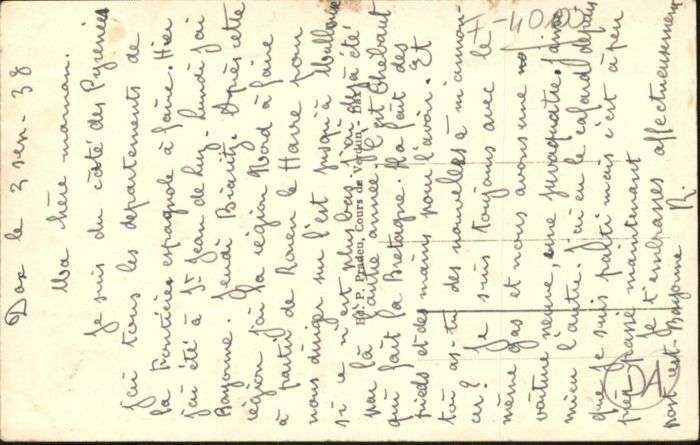 Dax le 3 sep - 38
Ma chère maman.
Je suis du côté des Pyrénées
j'ai tous les départements de
la frontière espagnole à faire. Hier
j'ai été à St Jean de Luz - Lundi j'ai
Bayonne. Jeudi Biarritz. Après cette
région j'ai la région Nord à faire
à partir de Rouen le Havre pour
nous diriger sur l'est jusqu'à Mulhouse
si ce n'est plus bas. J'ai déjà été
par là l'autre année. C'est Thebaut
qui fait la Bretagne. Il a fait des
pieds et des mains pour l'avoir. Et
toi as-tu des nouvelles à m'annon-
cer? Je suis toujours avec le
même gas et nous avons une
voiture neuve, une juvaquatre. J'aime
mieux l'autre. J'ai eu le cafard depuis
que je suis parti mais c'est à peu
près passé maintenant
Je t'embrasse affectueusement
R.
port est - Bayonne
Ed. P. Pradeu, Cours de Verdun - Dax
F-40.00
DA